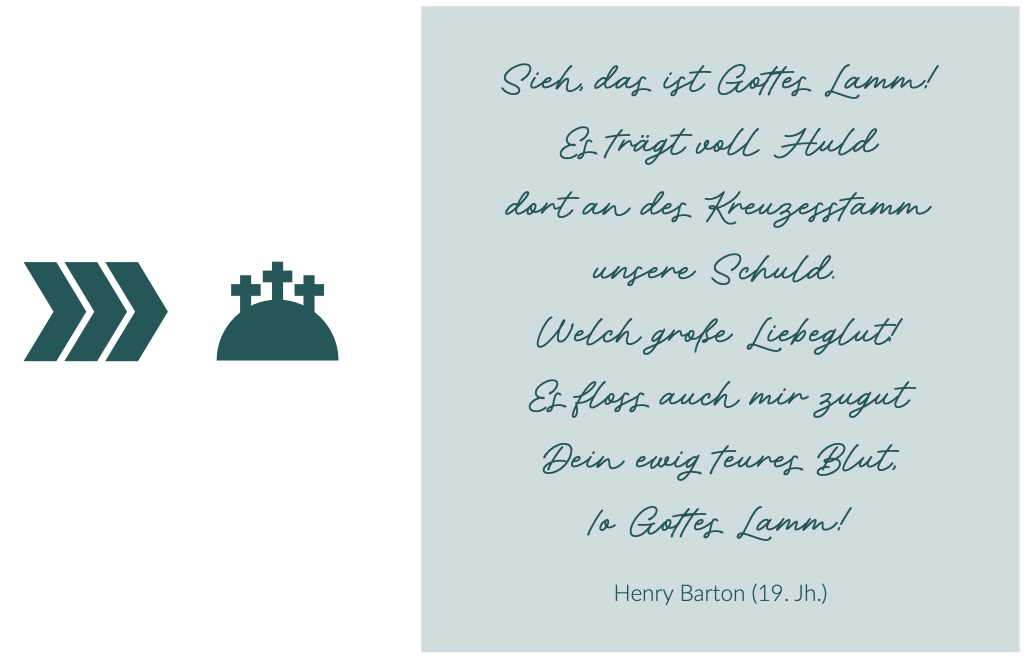 Sieh, das ist Gottes Lamm!
Es trägt voll Huld
dort an des Kreuzesstamm
unsere Schuld.
Welch große Liebeglut!
Es floss auch mir zugut
Dein ewig teures Blut,
lo Gottes Lamm!
Henry Barton (19. Jh.)